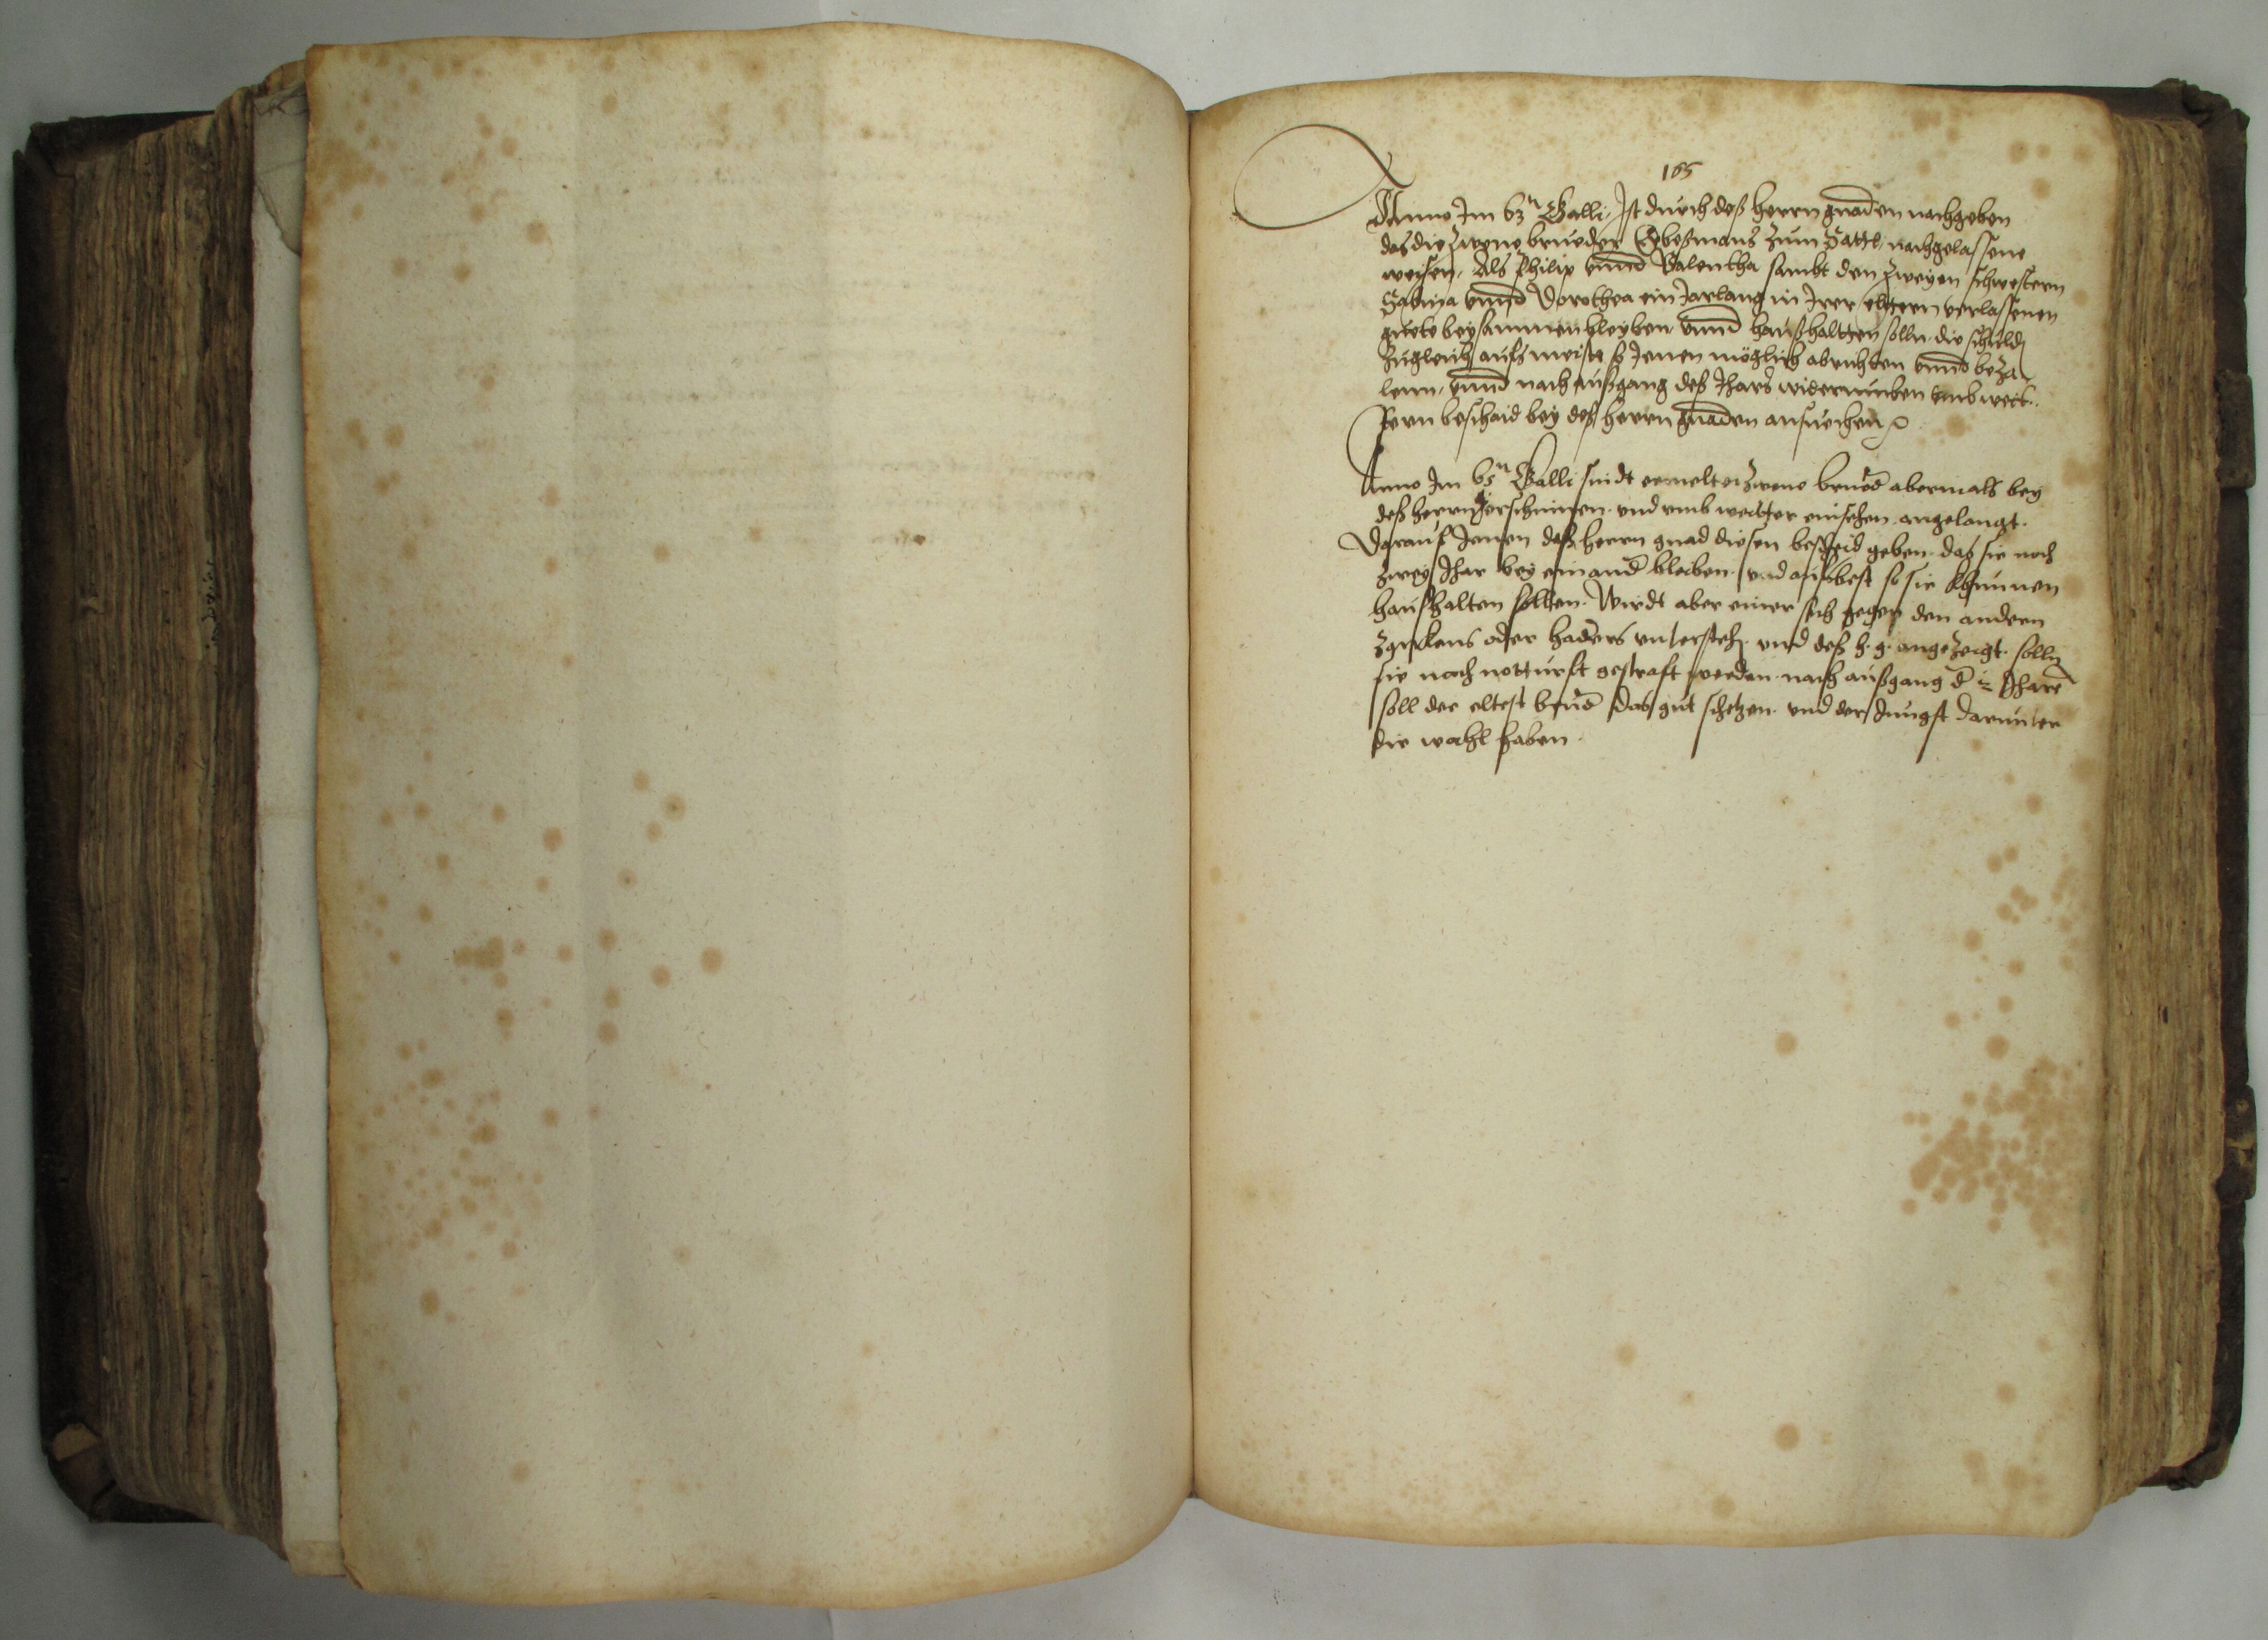 165
Anno Im 63n Galli, Ist durch deß herrn gnaden nachgeben
das die zwene brueder zum Sattl, nachgelassene
weisen, Als Philip vnnd Valentha sambt den zweyen schwestern
Sabina vnnd Dorothea ein Jarlang in Irer eltern verlassenen
guete beysammen bleyben vnnd haußhaltten solln, die schuld
zugleich aufs meiste Jenen möglich abrichten vnnd beza-
lenn, vnnd nach außgang deß Jhars widerumben vmb weit-
tern beschaid bey deß herrn gnaden ansuechen
Anno Im 65n Galli sindt ermelte zwene brued abermals bey
deß herrn g erschinnen. vnd vmb weitter einsehen angelangt.
Darauf Jenen deß herrn gnad diesen bescheid geben. das sie noch
zwey Jhar bey einand bleiben. vnd aufsbest so sie khunnen
haushalten sollen. Wirdt aber einer sich gegen den andern
zanckens oder haders vnterstehn vnd deß h. g. angezeigt. solln
sie nach notturft gestraft werden. nach außgang d 2 Jhare
soll der eltest brued das gut schetzen. vnd der Jungst darunter
die wahl haben.